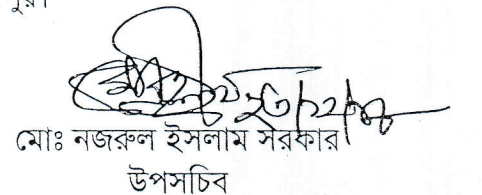 মোঃ নজরুল ইসলাম সরকার
উপসচিব